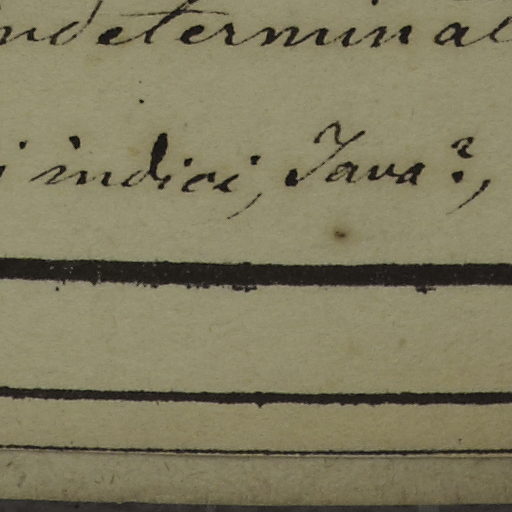 indeterminat
i indici, Java?,